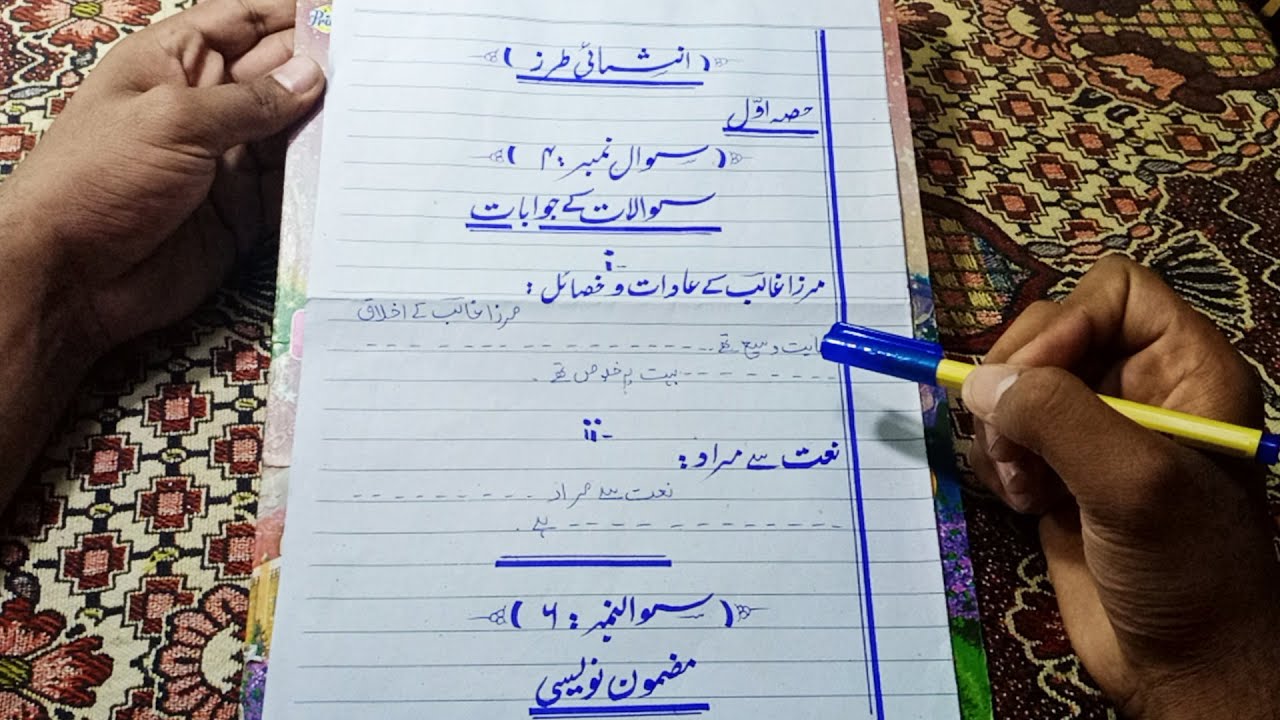 (انشائی طرز)
حصہ اوّل
(سوال نمبر: ۴)
سوالات کے جوابات
i-
مرزا غالب کے عادات و خصائل:
مرزا غالب کے اخلاق
وسیع تھے۔ - - - - - - - - - - - - - - - -
- - - - - - - - بہت پر خلوص تھے۔
ii-
نعت سے مراد:
نعت سے مراد - - - - - - - - -
- - - - - - - - - - - - - - ہے۔
(سوالنمبر: ۶)
مضمون نویسی